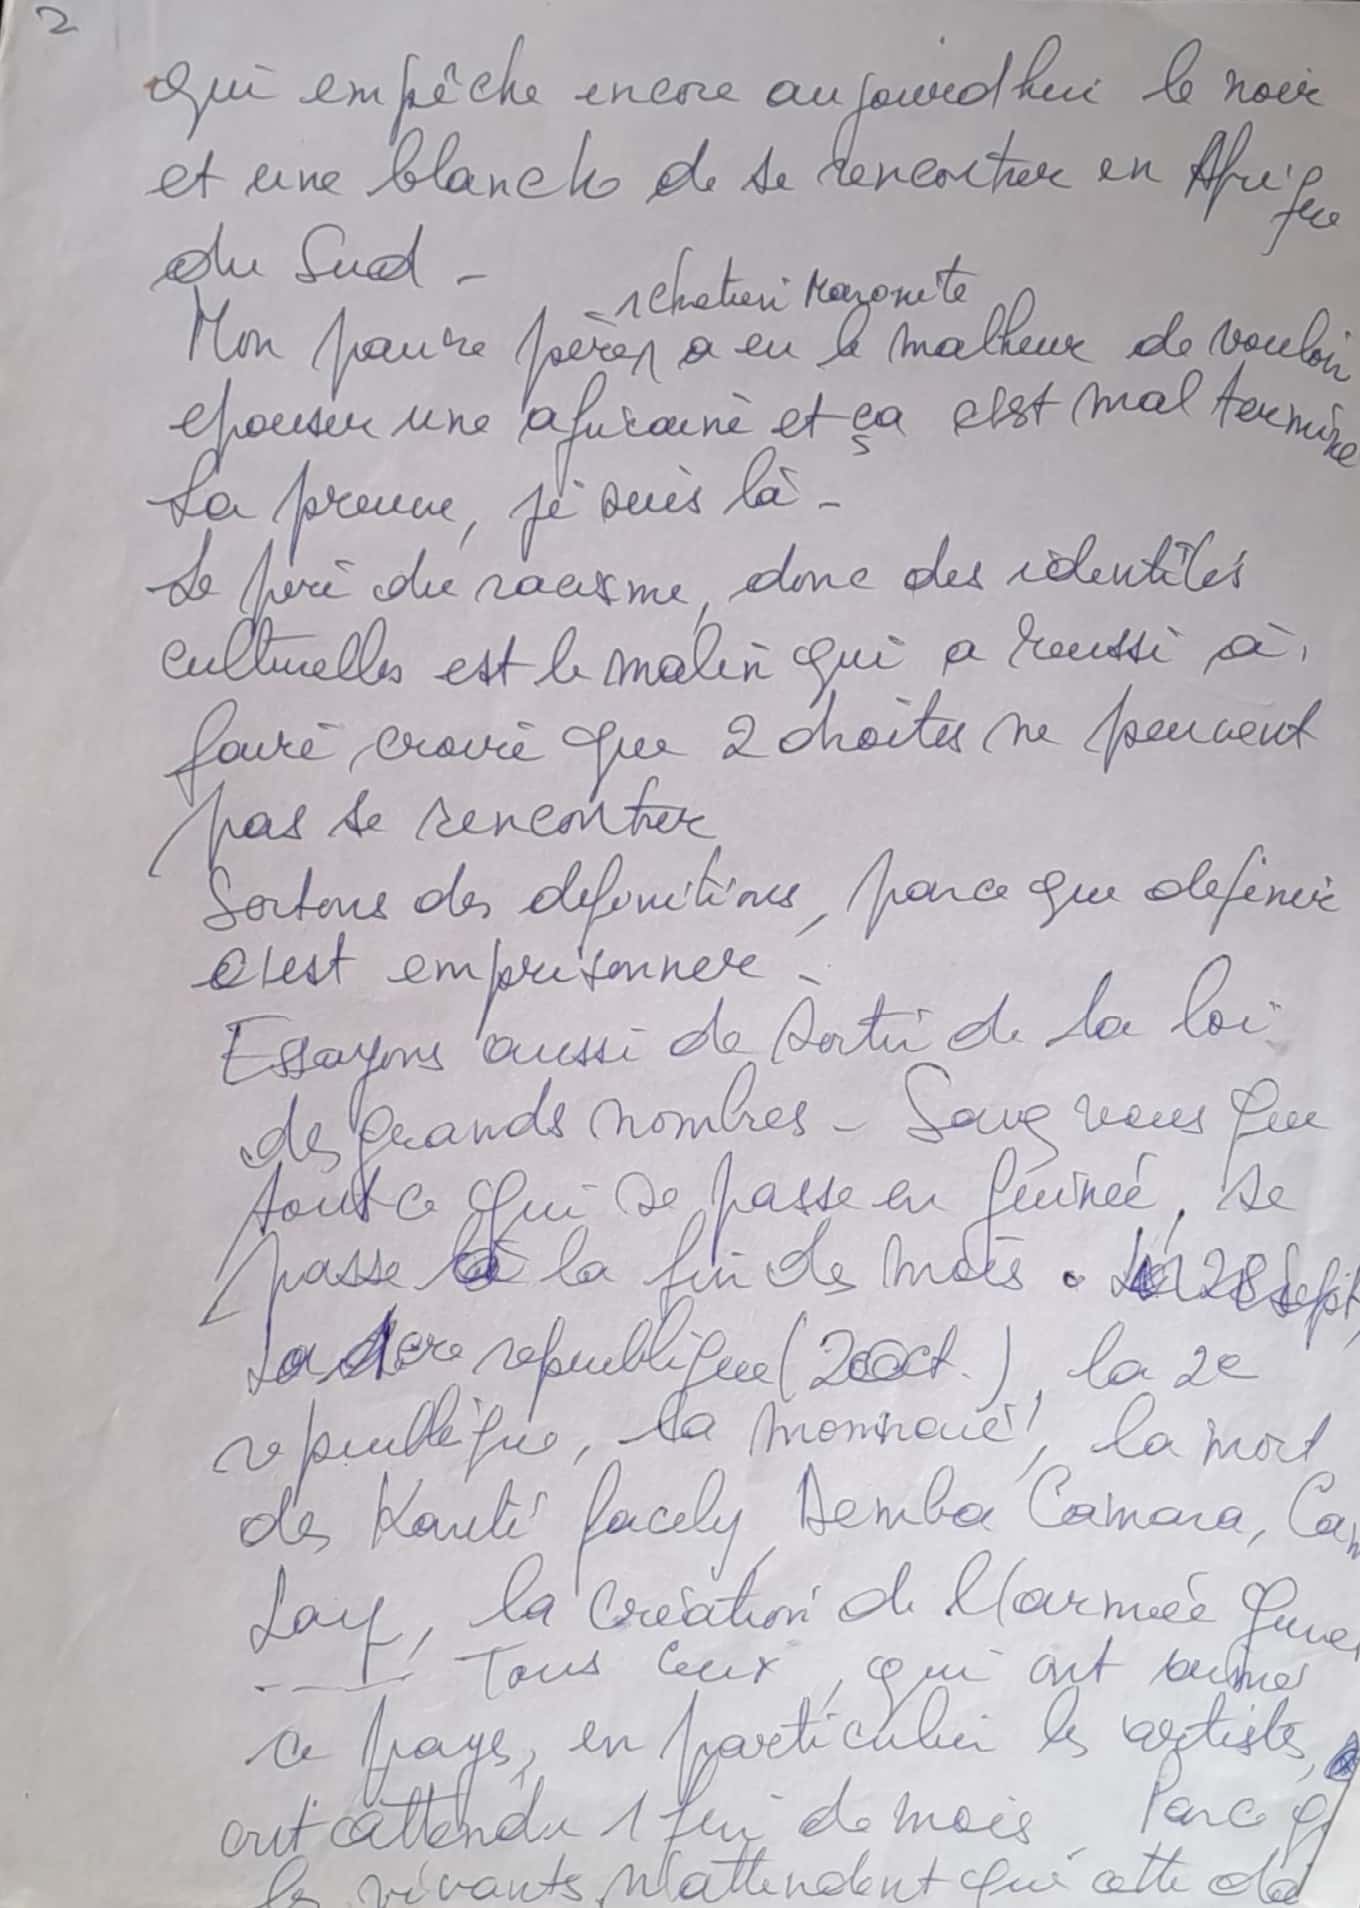 2
qui empêche encore aujourd'hui le noir
et une blanche de se rencontrer en Afrique
du Sud -
, chetien Maronite
Mon pauvre père, a eu le malheur de vouloir
epouser une africaine et ça c'est mal terminé
La preuve, je suis là -
Le père du racisme, donc des identités
culturelles est le malin qui a reussi à
faire croire que 2 droites ne peuvent
pas se rencontrer
Sortons des definitions, parce que definir
c'est emprisonner -
Essayons aussi de sortir de la loi
des grands nombres - Savez vous que
tout ce qui se passe en guinée, se
passe à la fin de mois. Le 28 Sept,
La 1ere republique (2 Oct.), la 2e
republique, la monnaie, la mort
des Kanté facely, Demba Camara, Cam
Lay, la création de l'armée guine
Tous ceux, qui ont
ce pays, en particulier les artistes,
ont attendu 1 fin de mois Parce q
les vivants n'attendent que cette da